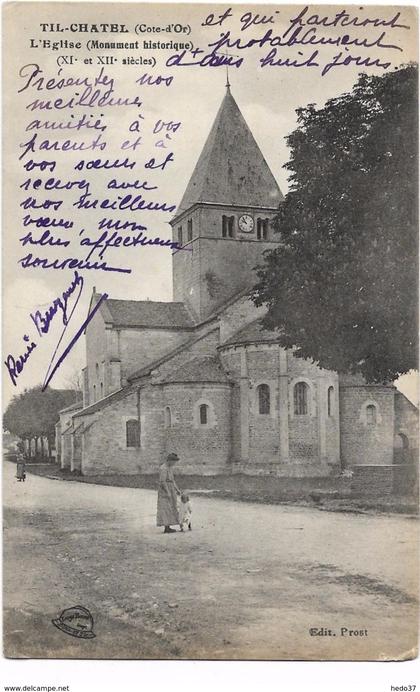 TIL-CHATEL (Cote-d'Or)
L'Eglise (Monument historique)
(XIᵉ et XIIᵉ siècles)
et qui partiront
probablement
dans huit jours.
Présentez nos
meilleures
amitiés à vos
parents et à
vos sœurs et
recevez avec
nos meilleurs
vœux mon
plus affectueux
souvenir
René
Edit. Prost
hedo37